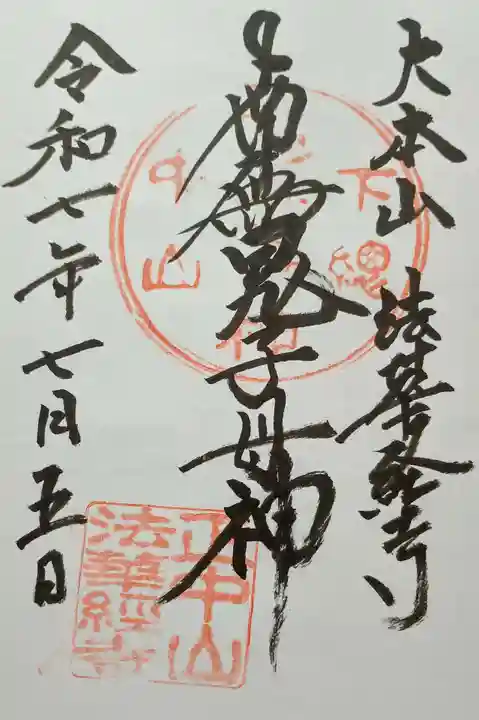 大本山 法華経寺
南無鬼子母神
令和七年七月五日
下總
中山
正中山
法華經寺